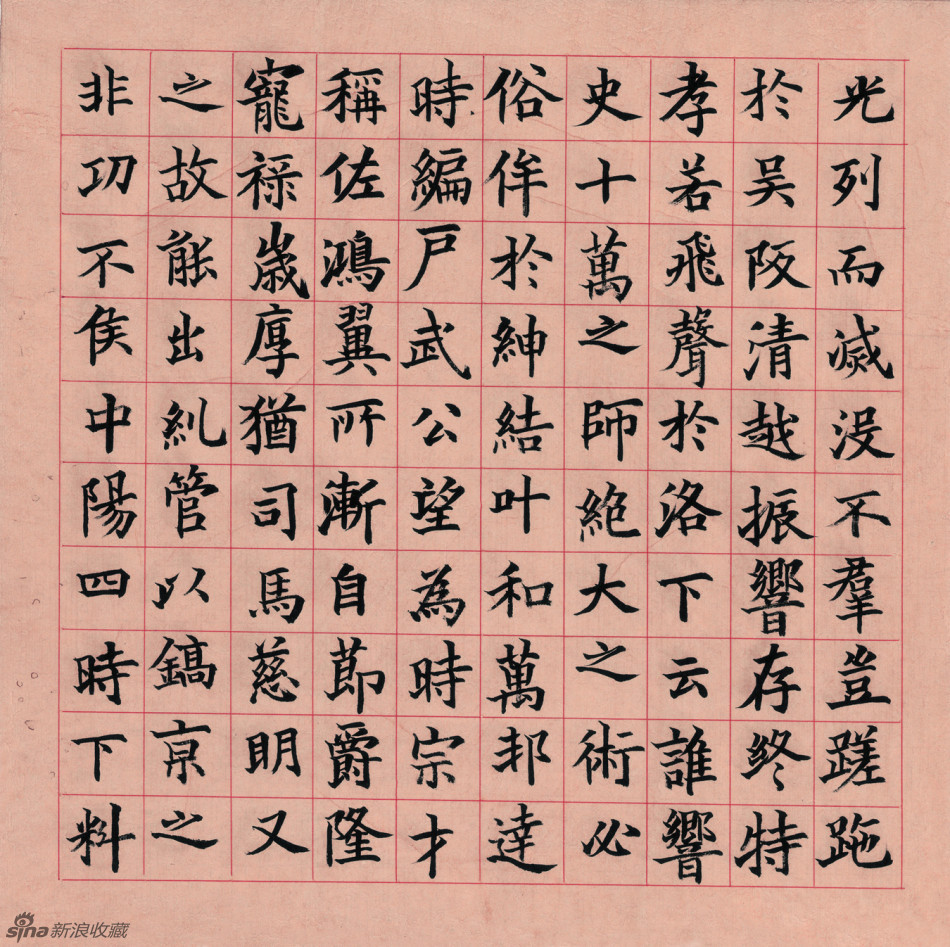 光列而滅没不羣豈蹉跎
於吴阪清越振響存終特
孝若飛聲於洛下云誰響
史十萬之師絶大之術必
俗侔於紳結叶和萬邦達
時編戸武公望為時宗才
稱佐鴻翼所漸自莭爵隆
寵禄嵗厚猶司馬慈明又
之故能出糺管以鎬京之
非功不侯中陽四時下料
sina新浪收藏